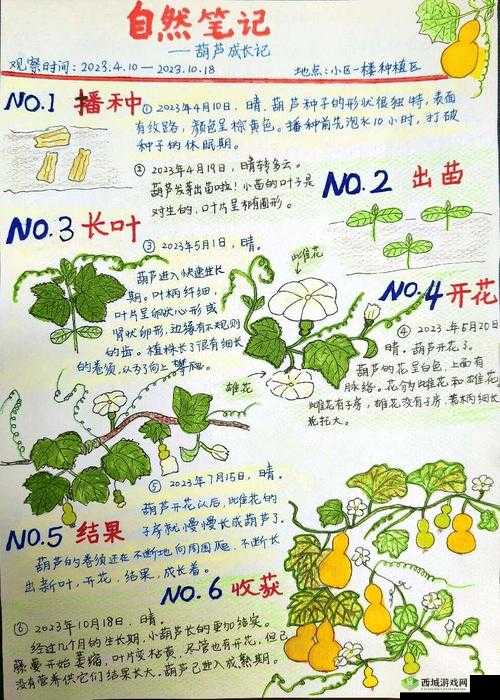 自然笔记
——葫芦成长记
观察时间：2023.4.10—2023.10.18
地点：小区一楼种植区
NO.1 播种
① 2023年4月10日，晴。葫芦种子的形状很独特，表面
有纹路，颜色呈棕黄色。播种前先泡水10小时，打破
种子的休眠期。
② 2023年4月19日，晴转多云。
葫芦发芽出苗啦！小苗的叶子是
对生的，叶片呈卵圆形。
NO.2 出苗
NO.3 长叶
③ 2023年5月1日，晴。
葫芦进入快速生长
期。叶柄纤细，
叶片呈卵状心形或
肾状卵形，边缘有不规则
的齿。植株长了很有细长
的卷须，从
向上攀爬。
雌花
雄花
NO.4 开花
④ 2023年5月20日
晴。葫芦开花了。
葫芦的花呈白色，上面有
脉络。花分雌花和雄花
雌花有子房，雄花没有子房，花柄细长
花托大。
⑤ 2023年7月15日，晴。
葫芦开花以后，雌花的
子房就慢慢长成葫芦了。
NO.5 结果
葫芦的卷须还在不断地向周围爬，不断长
出新叶，开花，结果，成长着。
NO.6 收获
⑥ 2023年10月18日，晴。
经过几个月的生长期，小葫芦长的更加结实。
藤蔓开始萎缩，叶片变枯黄，尽管也有开花，但已
没有营养供它们结果长大。葫芦已进入成熟期。
西城游戏网